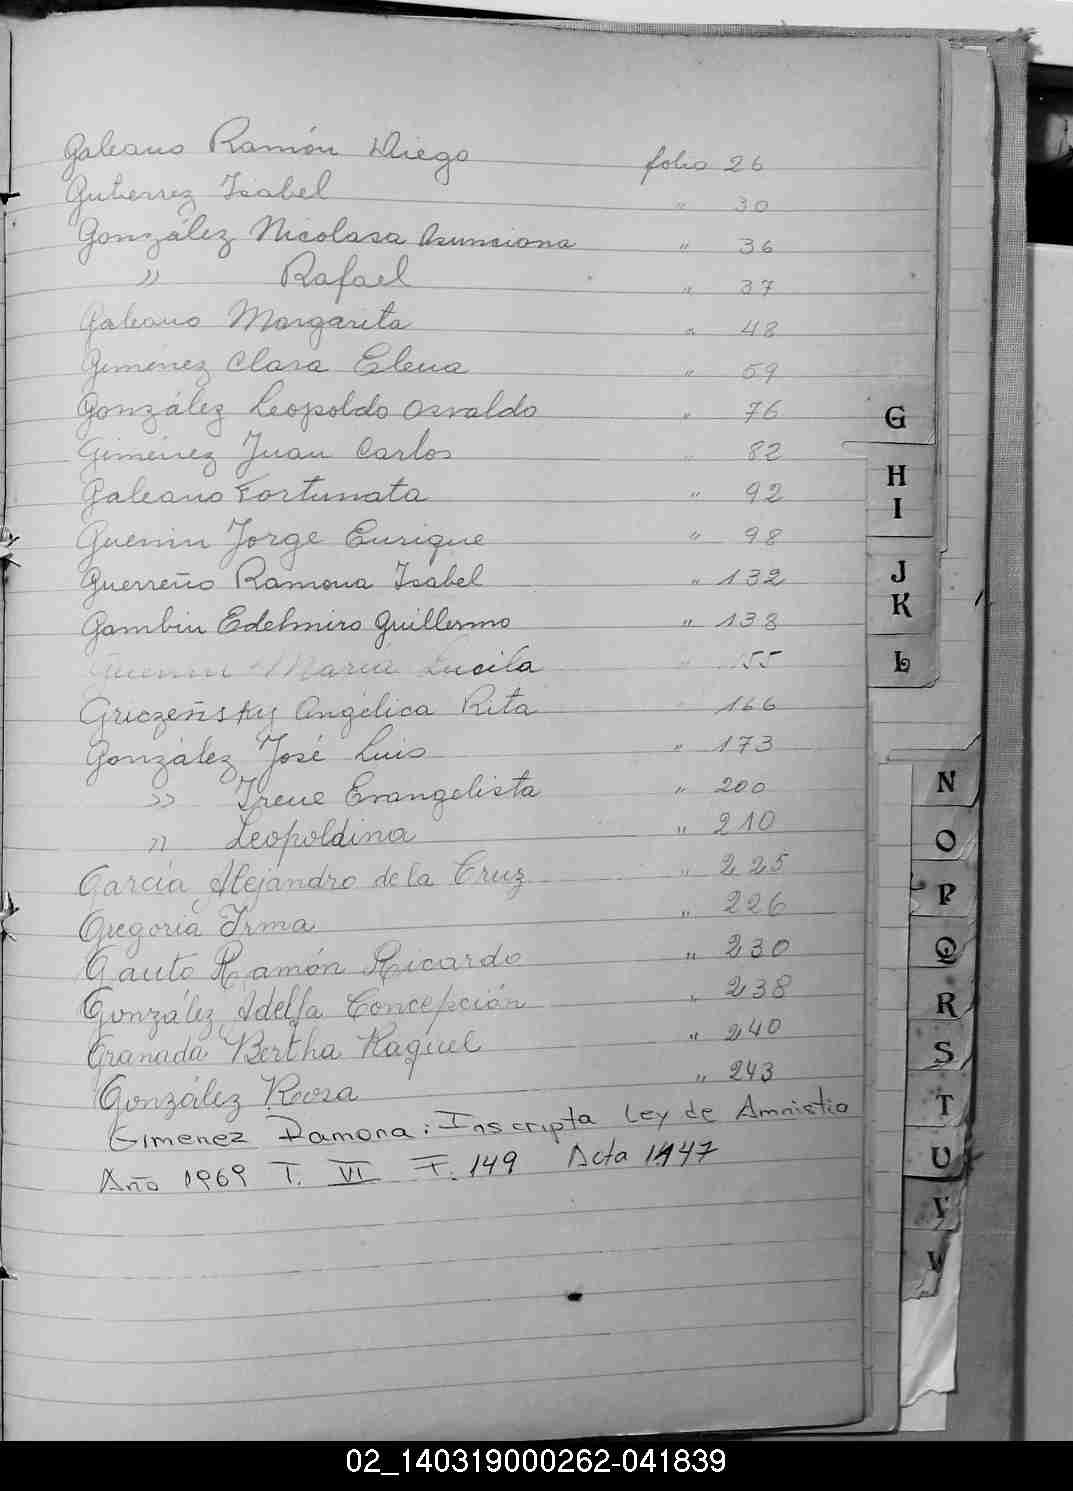 Galeano Ramón Diego folio 26
Gutierrez Isabel " 30
González Nicolasa Asunciona " 36
" Rafael " 37
Galeano Margarita " 48
Gimenez Clara Elena " 59
González Leopoldo Osvaldo " 76
Giménez Juan Carlos " 82
Galeano Fortunata " 92
Guenin Jorge Enrique " 98
Guerreño Ramona Isabel " 132
Gambin Edelmiro Guillermo " 138
Guenin María Lucila " 155
Griczeñsky Angélica Rita 166
González José Luis " 173
" Irene Evangelista " 200
" Leopoldina " 210
García Alejandro de la Cruz " 225
Gregoria Irma " 226
Gauto Ramón Ricardo " 230
González Adelfa Concepción " 238
Granada Bertha Raquel " 240
González Rosa " 243
Gimenez Ramona: Inscripta Ley de Amnistia
Año 1969 T. VI F. 149 Acta 1447
G
H
I
J
K
L
N
O
P
Q
R
S
T
U
V
W
02_140319000262-041839